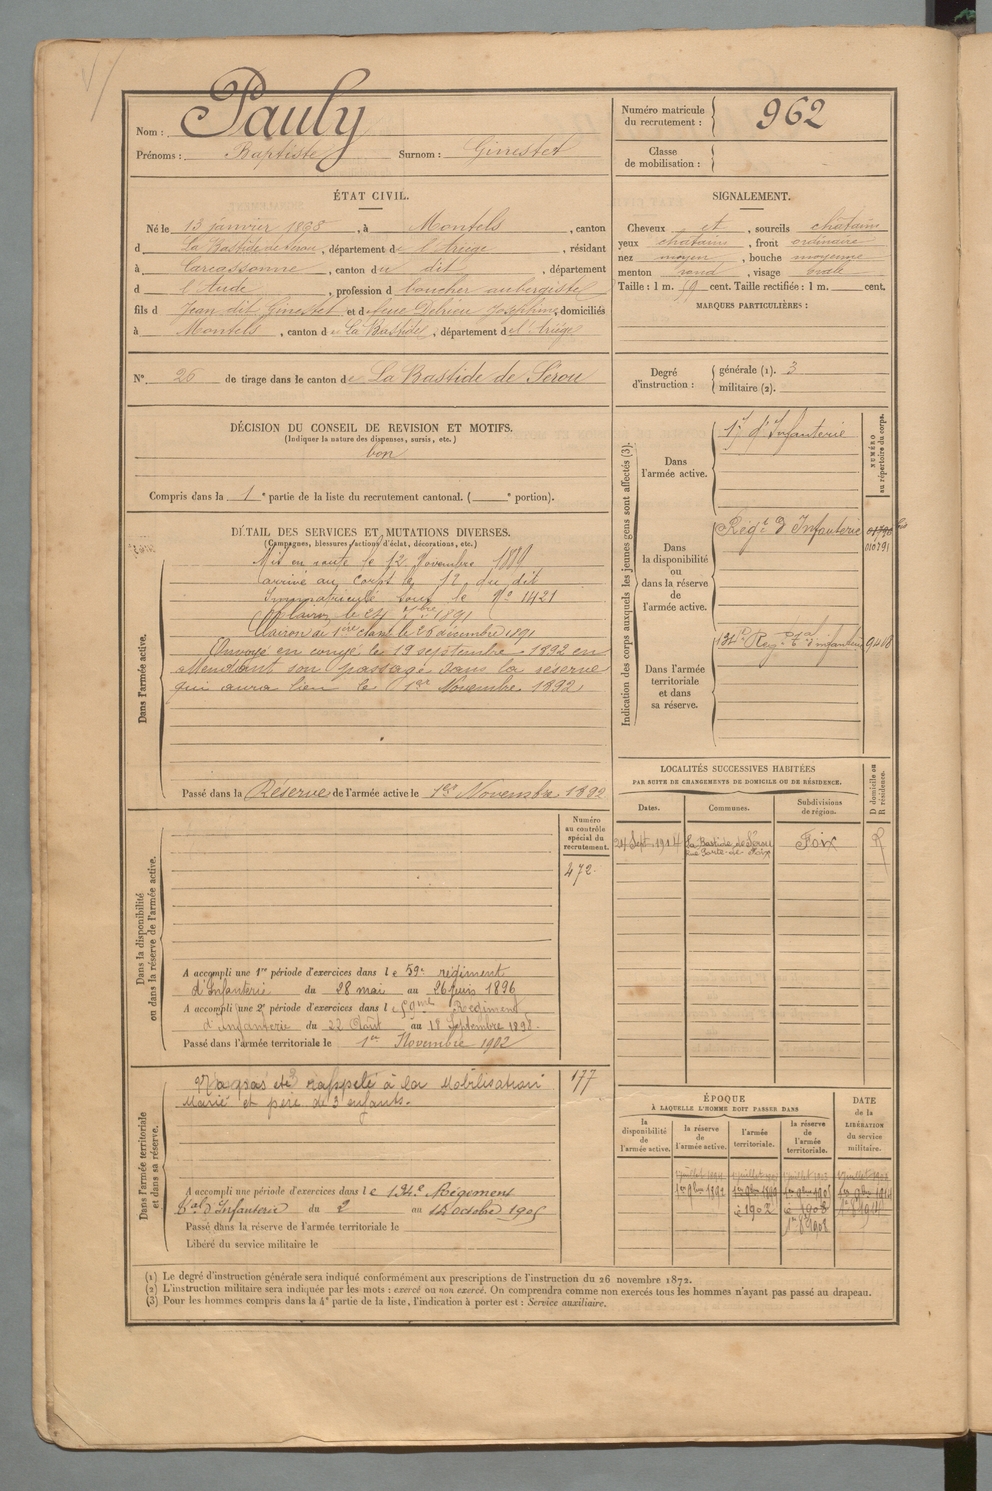 Nom : Pauly
Prénoms : Baptiste Surnom : Ginestet
Numéro matricule du recrutement : 962
Classe de mobilisation :
ÉTAT CIVIL.
Né le 13 janvier 1868, à Montels, canton
d La Bastide de Serou, département de l'Ariège, résidant
à Carcassonne, canton du dit, département
d l'Aude, profession d boucher aubergiste
fils d Jean dit Ginestet et de feue Delrieu Josephine, domiciliés
à Montels, canton de La Bastide, département de l'Ariège
N° 26 de tirage dans le canton de La Bastide de Serou
SIGNALEMENT.
Cheveux et, sourcils châtains
yeux châtains, front ordinaire
nez moyen, bouche moyenne
menton rond, visage ovale
Taille : 1 m. 59 cent. Taille rectifiée : 1 m. cent.
MARQUES PARTICULIÈRES :
Degré d'instruction : générale (1). 3
militaire (2).
DÉCISION DU CONSEIL DE REVISION ET MOTIFS.
(Indiquer la nature des dispenses, sursis, etc.)
bon
Compris dans la 1e partie de la liste du recrutement cantonal. ( e portion).
DÉTAIL DES SERVICES ET MUTATIONS DIVERSES.
(Campagnes, blessures, actions d'éclat, décorations, etc.)
Dans l'armée active.
Mis en route le 12 Novembre 1889
arrivé au corps le 12 du dit
Immatriculé sous le N° 1421
Clairon le 24 1891
Clairon de 1ère classe le 26 décembre 1891
Envoyé en congé le 19 septembre 1892 en
attendant son passage dans la réserve
qui aura lieu le 1er Novembre 1892
Passé dans la Réserve de l'armée active le 1er Novembre 1892
Indication des corps auxquels les jeunes gens sont affectés (3).
NUMÉRO au répertoire du corps.
Dans l'armée active.
d'Infanterie
Dans la disponibilité ou dans la réserve de l'armée active.
Regt d'Infanterie
010791
Dans l'armée territoriale et dans sa réserve.
134e Regt tal d'infanterie 9408
LOCALITÉS SUCCESSIVES HABITÉES
PAR SUITE DE CHANGEMENTS DE DOMICILE OU DE RÉSIDENCE.
Dates. Communes. Subdivisions de région. D domicile ou R résidence.
24 Sept. 1914 La Bastide de Sérou Foix R
Rue Porte de Foix
Dans la disponibilité ou dans la réserve de l'armée active.
Numéro au contrôle spécial du recrutement.
472
A accompli une 1re période d'exercices dans le 59e régiment
d'Infanterie du 28 mai au 26 juin 1896
A accompli une 2e période d'exercices dans le 59me Régiment
d'Infanterie du 22 Août au 18 Septembre 1898.
Passé dans l'armée territoriale le 1er Novembre 1902
Dans l'armée territoriale et dans sa réserve.
N'a pas été rappelé à la Mobilisation 177
Marié et père de 3 enfants.
A accompli une période d'exercices dans le 134e Régiment
tal d'Infanterie du 2 au 15 octobre 1905
Passé dans la réserve de l'armée territoriale le
Libéré du service militaire le
ÉPOQUE
À LAQUELLE L'HOMME DOIT PASSER DANS
la disponibilité de l'armée active.
la réserve de l'armée active.
l'armée territoriale.
la réserve de l'armée territoriale.
DATE de la LIBÉRATION du service militaire.
1er 9bre 1892 1er 9bre 1899 1er 9bre 1908
1902 1908
(1) Le degré d'instruction générale sera indiqué conformément aux prescriptions de l'instruction du 26 novembre 1872.
(2) L'instruction militaire sera indiquée par les mots : exercé ou non exercé. On comprendra comme non exercés tous les hommes n'ayant pas passé au drapeau.
(3) Pour les hommes compris dans la 4e partie de la liste, l'indication à porter est : Service auxiliaire.